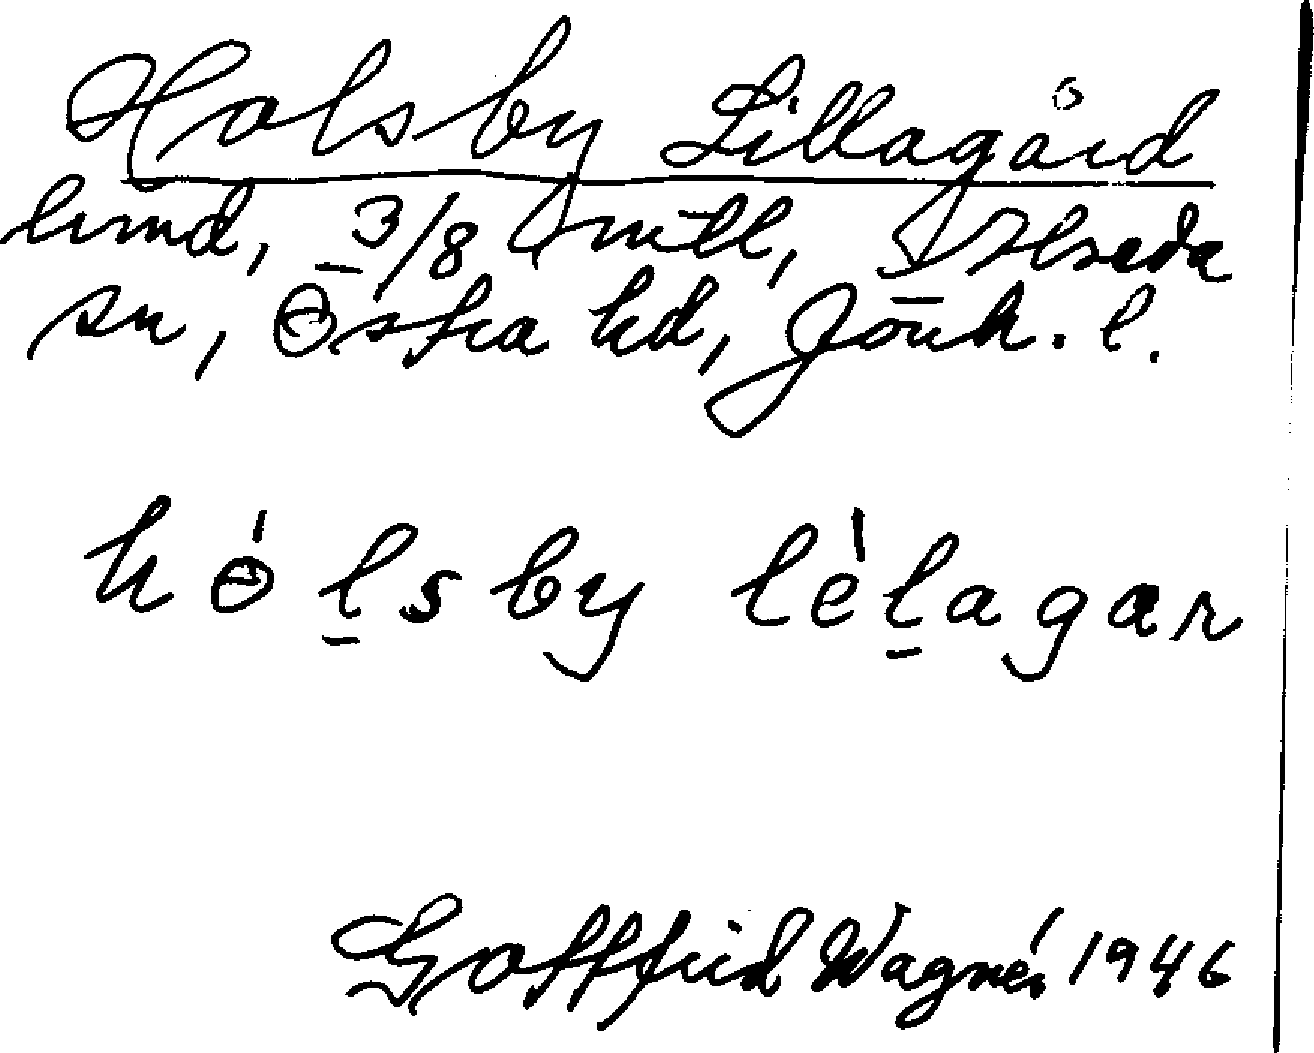 Holsby Lillagård
hmd, 3/8 mtl, Alseda
sn, Östra hd, Jönk. l.
hɵ́lsby lèlagar
Gottfrid Wagnér 1946